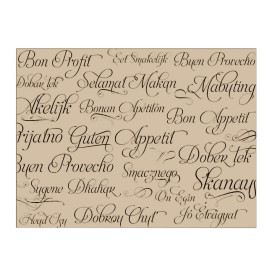 Bon Profit Eet Smakelijk Buen Provecho
Dober Tek Selamat Makan Mabuting
Akelijk Bonan Apetiton
Bon Appetit
Prijatno Guten Appetit
Dober Tek
Buen Provecho Smacznego Skanaus
Sygene Dhahar On Egin
Dobrou Chut Jó Étvágyat